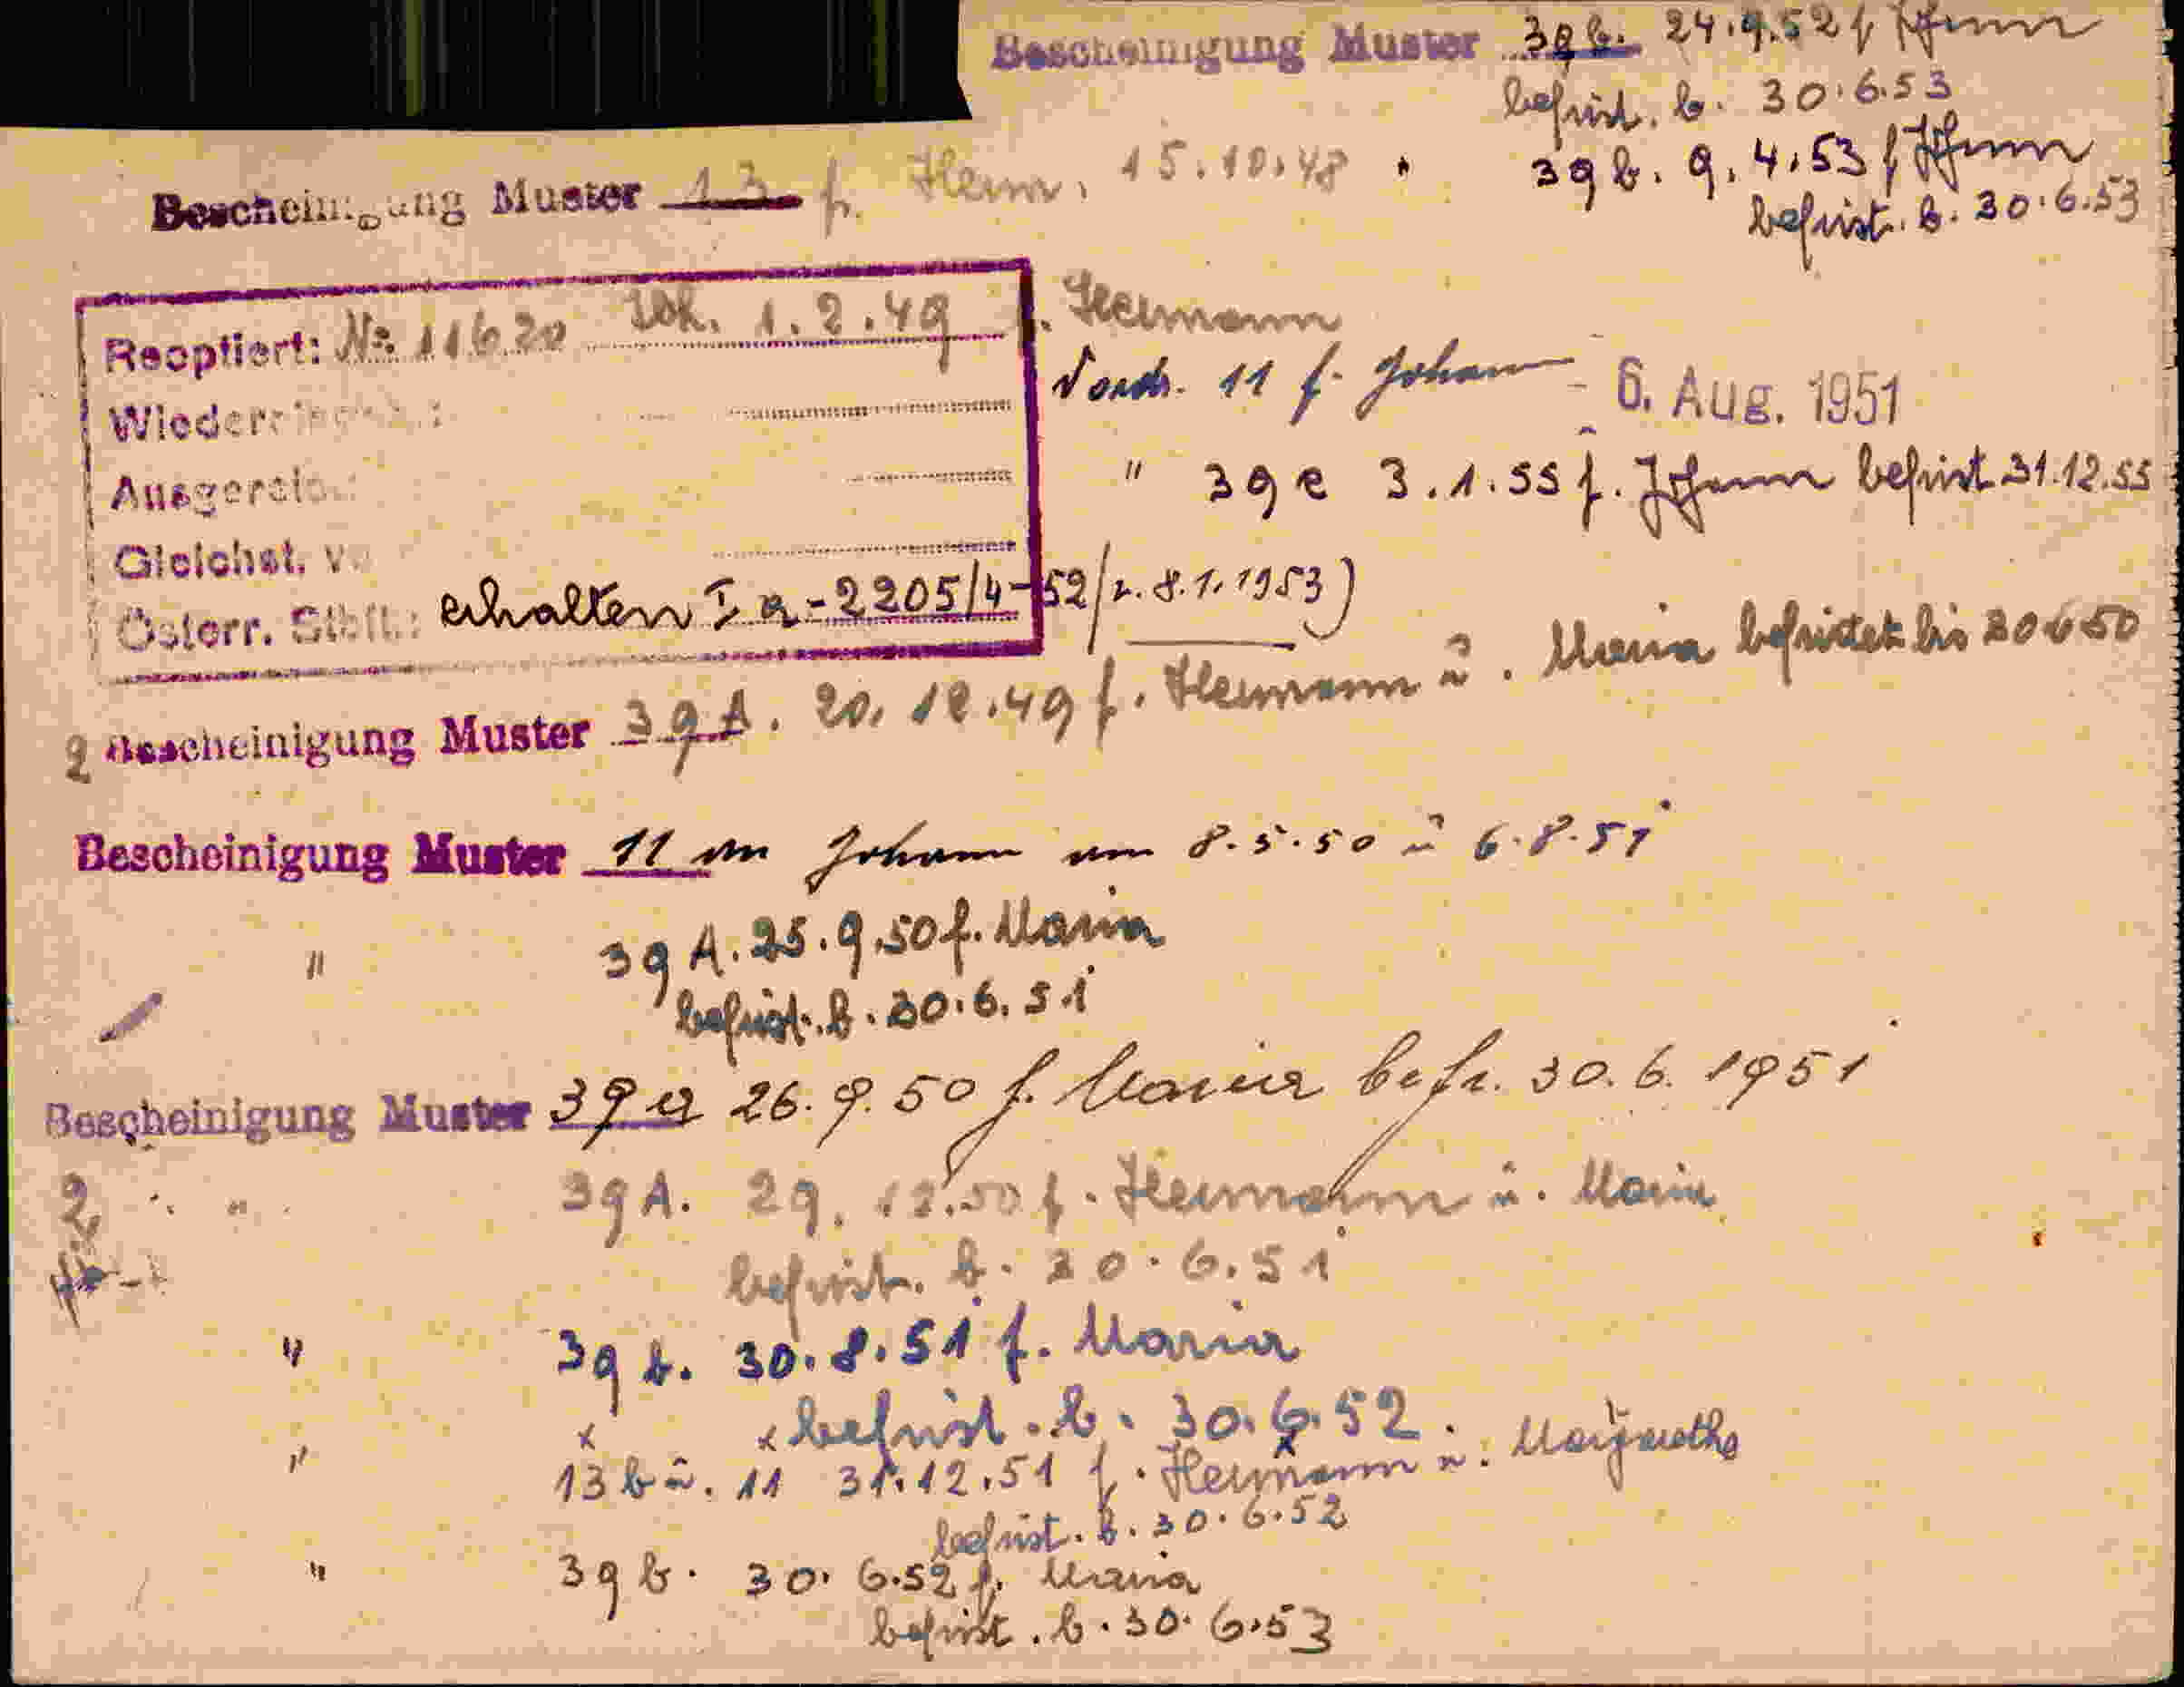 Bescheinigung Muster 39b. 24.9.52 f Johann
befrist. b. 30.6.53
Bescheinigung Muster 13 f. Herm. 15.10.48
39b. 9.4.53 f Johann
befrist. b. 30.6.53
Reoptiert: No. 11620 1.2.49 f. Hermann
Vordr. 11 f. Johann - 6. Aug. 1951
" 39e 3.1.55 f. Johann befrist 31.12.55
Gleichst. v.
Österr. Stbft.: erhalten I a-2205/4-52/v. 8.1.1953)
2 Bescheinigung Muster 39A. 20.12.49 f. Hermann u. Maria befristet bis 30 6 50
Bescheinigung Muster 11 an Johann am 8.5.50 u 6.8.51
" 39A. 25.9.50 f. Maria
befrist. b. 30.6.51
Bescheinigung Muster 39a 26.9.50 f. Maria befr. 30.6.1951
2 " 39A. 29.12.50 f. Hermann u. Maria
befrist. b. 30.6.51
" 39b. 30.8.51 f. Maria
befrist. b. 30.6.52.
" 13b u. 11 31.12.51 f. Hermann u. Margarethe
befrist. b. 30.6.52
" 39b. 30.6.52 f. Maria
befrist. b. 30.6.53